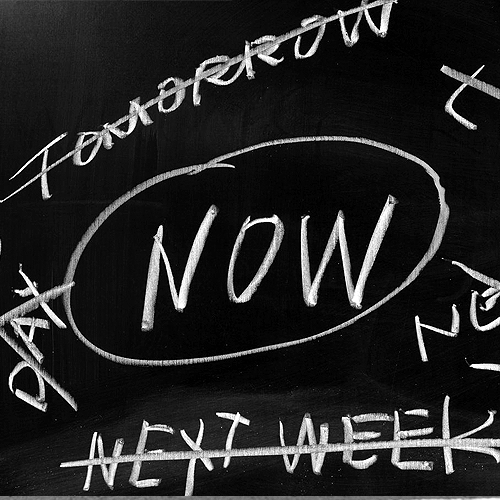 TOMORROW
NOW
DAY
NEXT WEEK